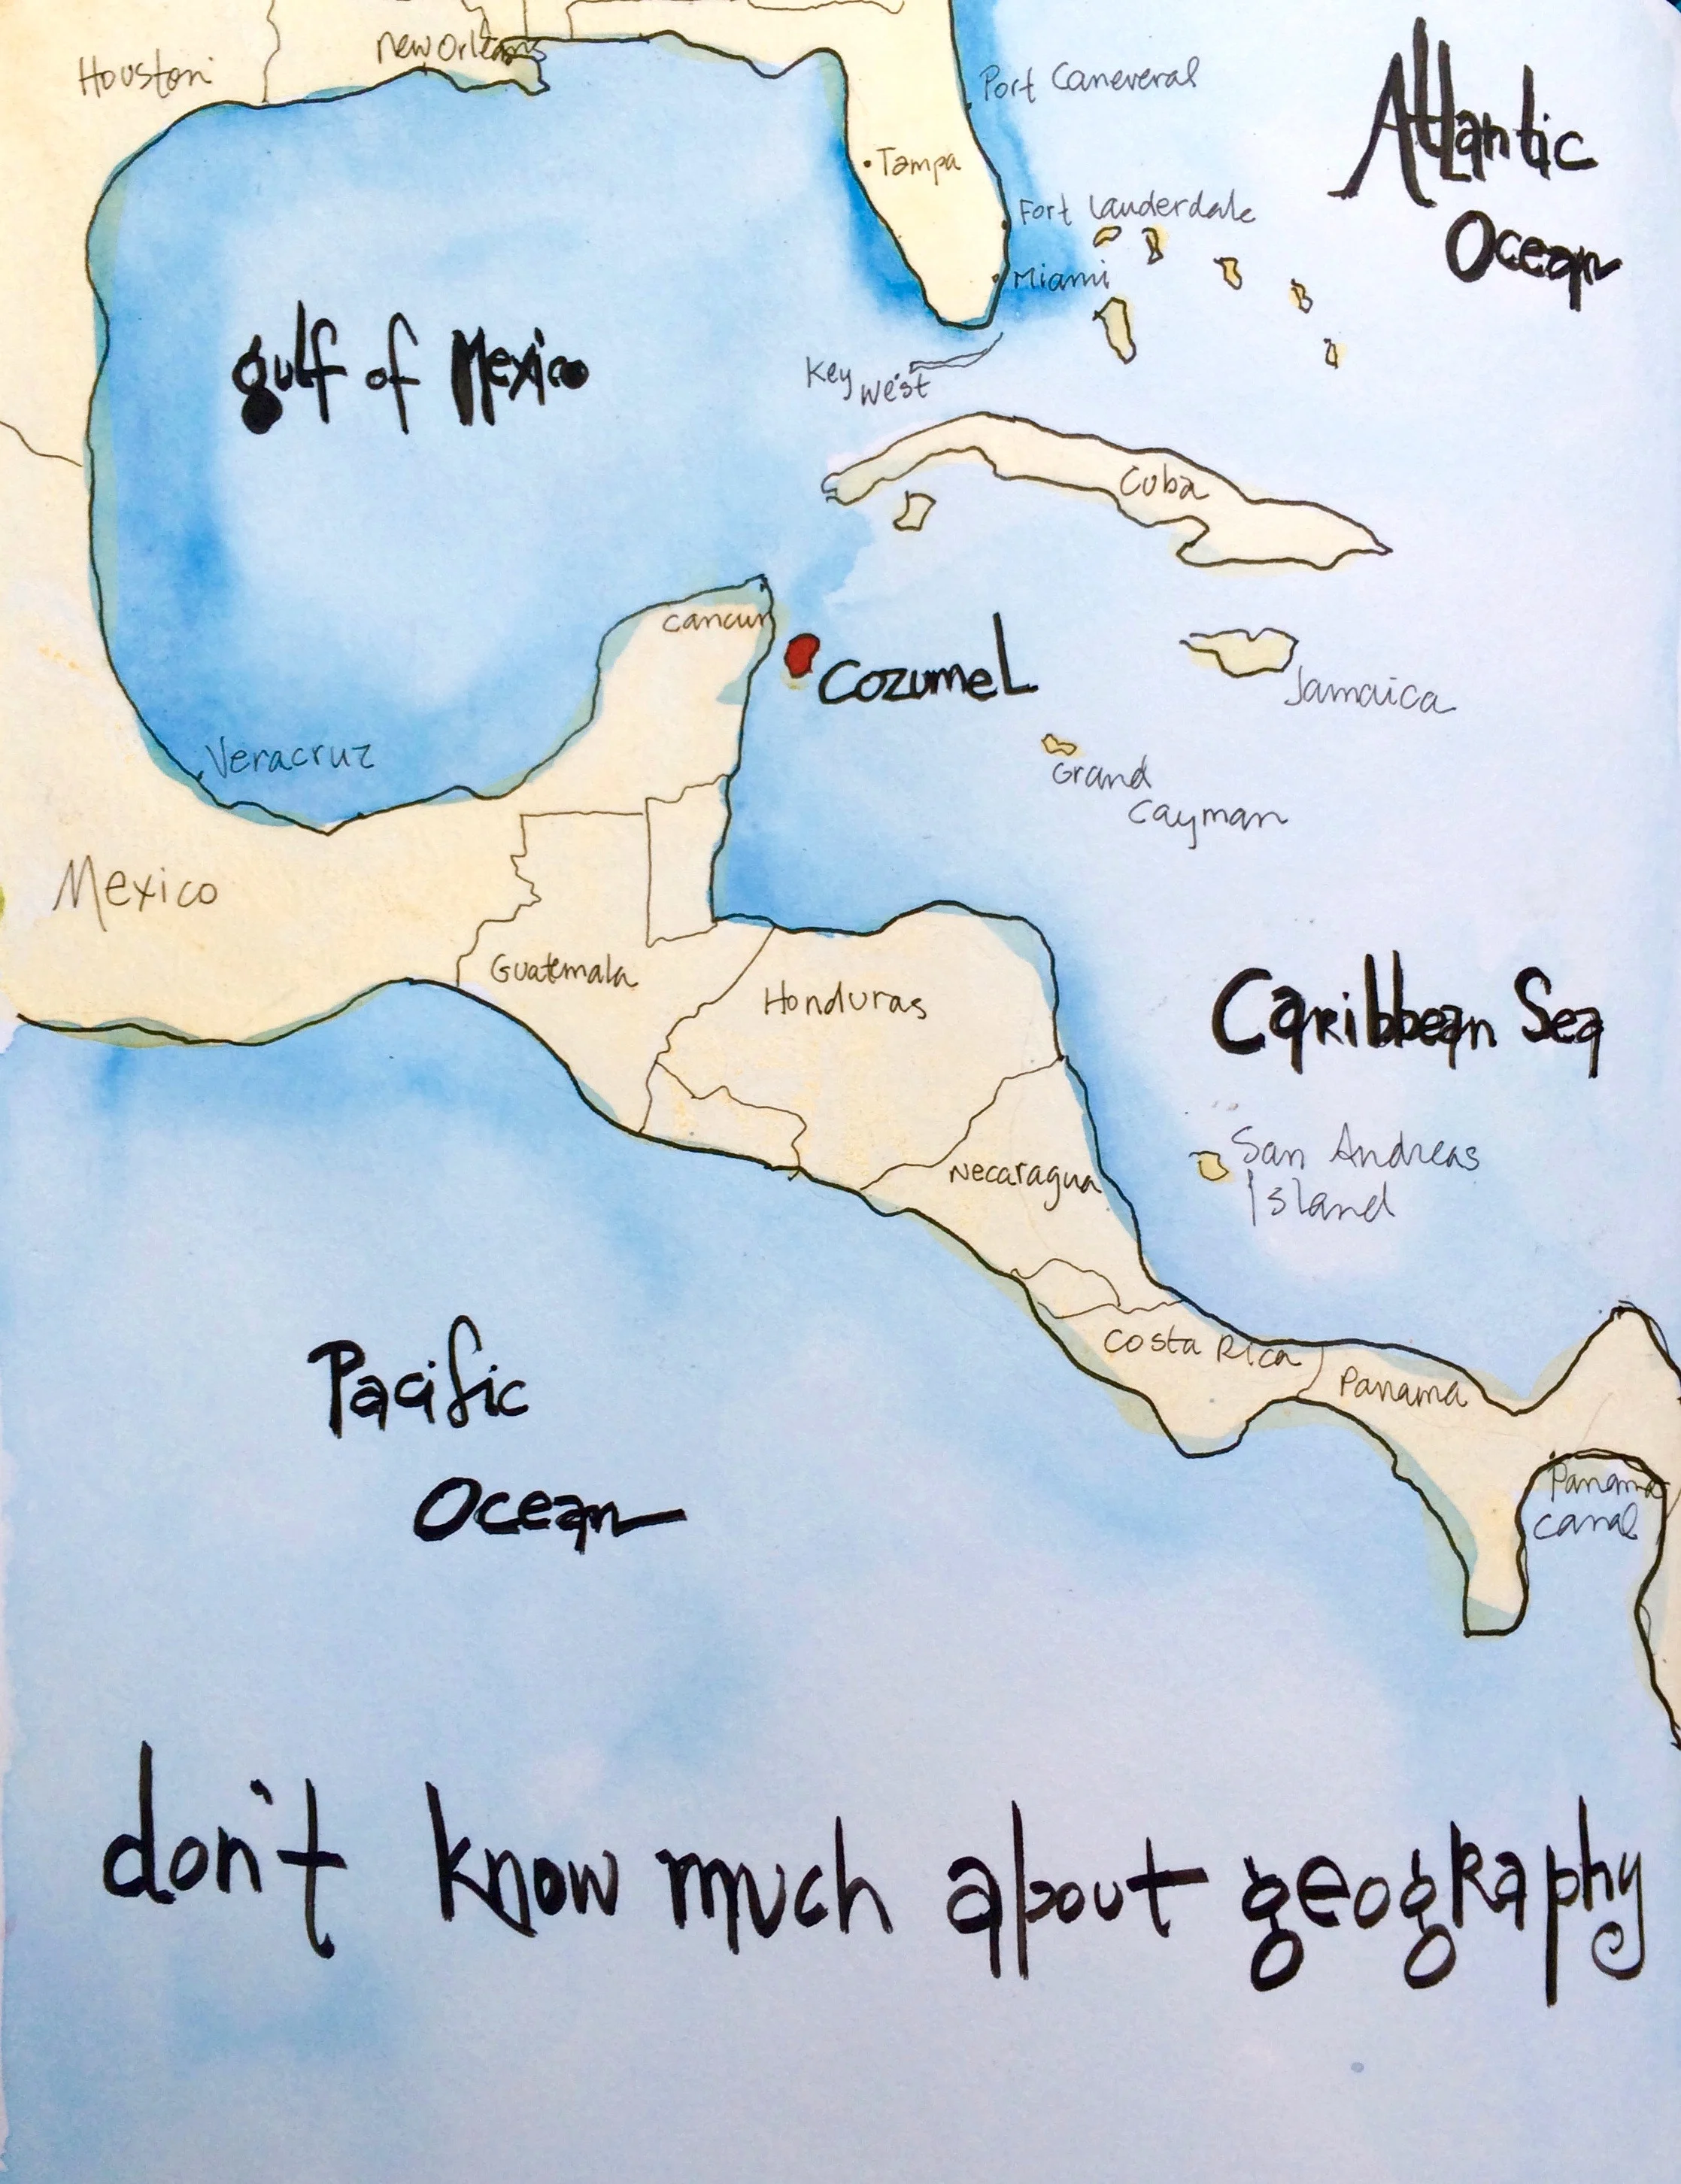 Houston
New Orleans
Port Caneveral
Atlantic
Ocean
Tampa
Fort Lauderdale
Miami
gulf of Mexico
Key
West
Cuba
Cancun
Cozumel
Jamaica
Veracruz
Grand
Cayman
Mexico
Guatemala
Honduras
Caribbean Sea
San Andreas
Island
Necaragua
Pacific
Ocean
Costa Rica
Panama
Panama
Canal
don't know much about geography